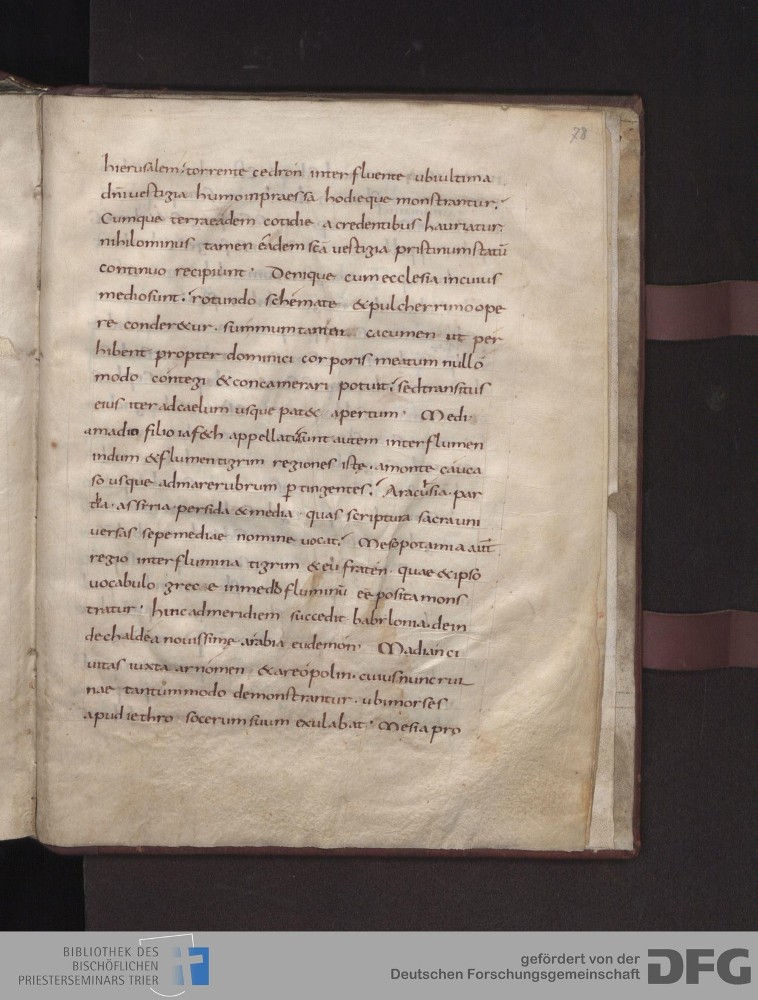 78
hierusalem; torrente cedron interfluente ubi ultima
dñi vestigia humo inpraessa hodieque monstrantur;
Cumque terra eadem cotidie a credentibus hauriatur;
nihilominus tamen eadem scā vestigia pristinum statū
continuo recipiunt; Denique cum ecclesia in cuius
medio sunt; rotundo schemate & pulcherrimo ope
re conder&ur. summum tamen cacumen ut per
hibent propter dominici corporis meatum nullo
modo contegi & concamerari potuit; sed transitus
eius iter ad caelum usque pat&c apertum; Medi
a madio filio iaf&h appellati sunt autem inter flumen
indum & flumen tigrim regiones istę. a monte cauca
so usque ad mare rubrum ꝑtingentes; Aracusia. par
thia. assiria. persida & media. quas scriptura sacra uni
versas sepe mediae nomine vocat; Mesopotamia aūt
regio inter flumina tigrim & eufraten. quae & ipso
vocabulo grece in medio fluminū eē posita mons
tratur; hinc ad meridiem succedit babylonia. dein
de chaldea novissime arabia eudemon; Madian ci
vitas iuxta arnomen & areopolin. cuius nunc rui
nae tantummodo demonstrantur. ubi moyses
apud iethro socerum suum exulabat; Mesia pro
BIBLIOTHEK DES
BISCHÖFLICHEN
PRIESTERSEMINARS TRIER
gefördert von der
Deutschen Forschungsgemeinschaft
DFG